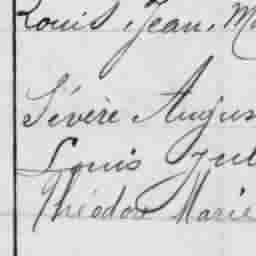 Louis, Jean, Ma
Sévère Augus
Louis Jul
Théodore Marie